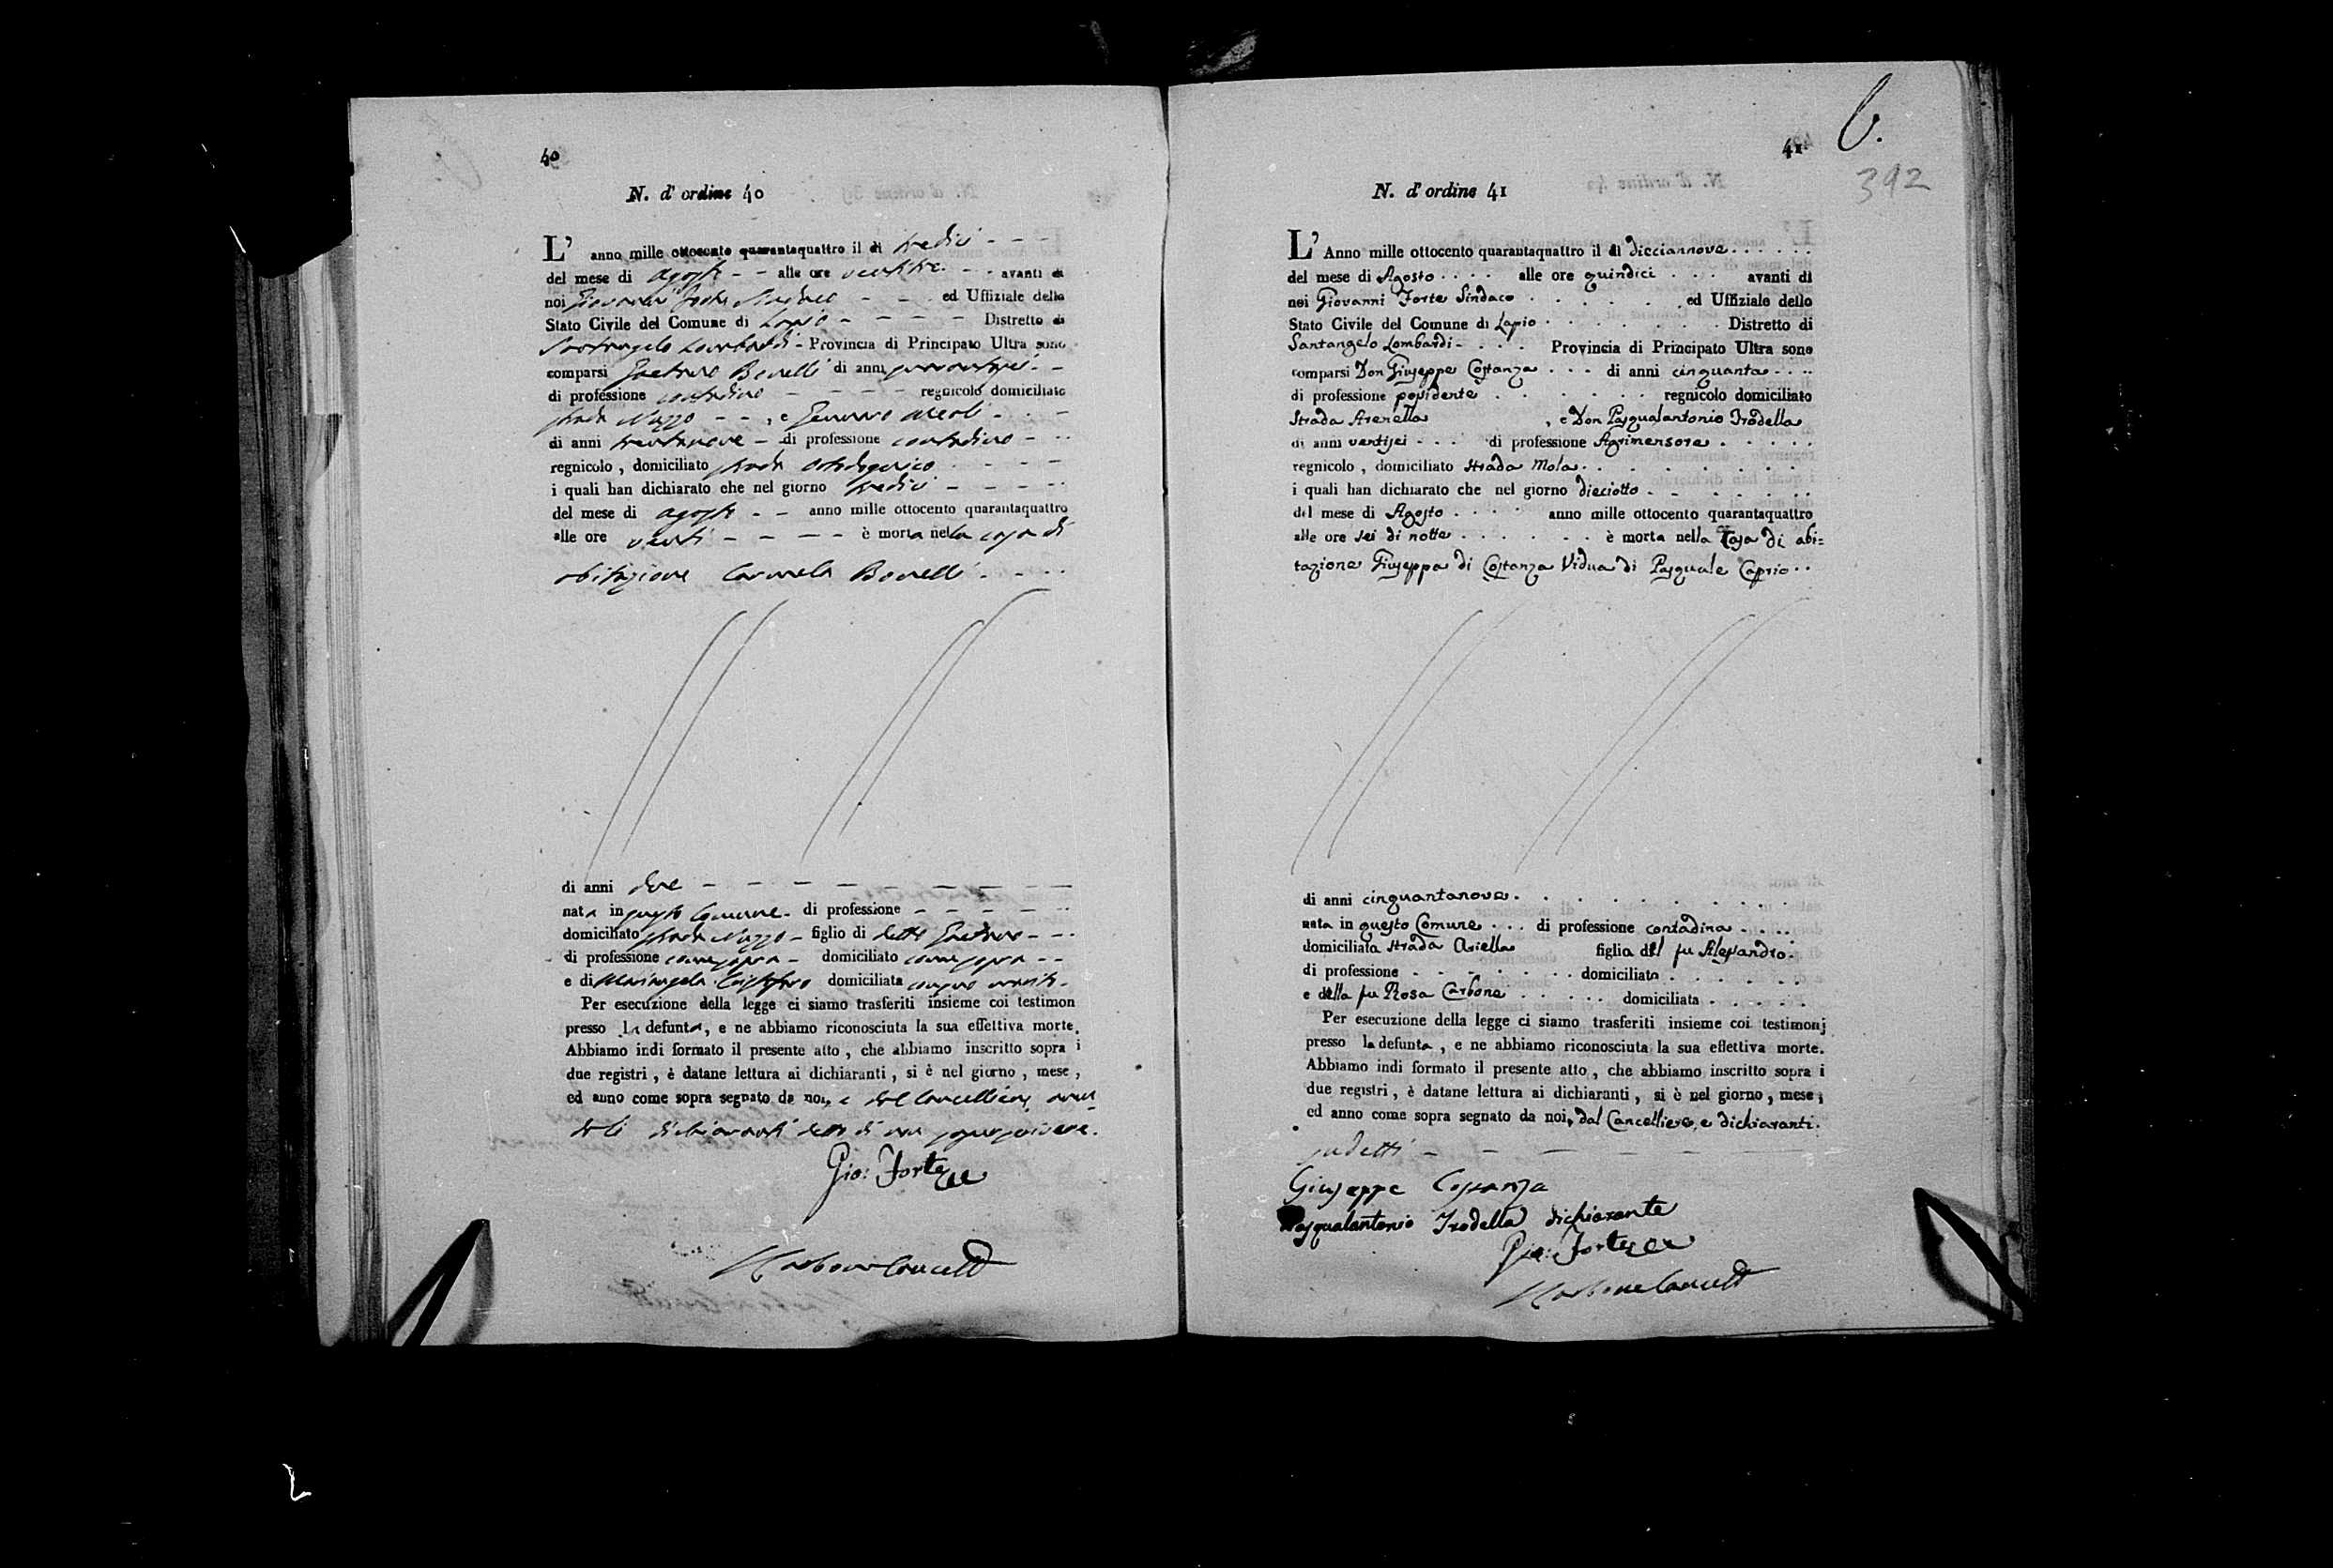 40
N. d' ordine 40
L' anno mille ottocento quarantaquattro il di tredici
del mese di agosto - - alle ore ventitre - - avanti di
noi Giovanni Forte Sindaco - - ed Uffiziale dello
Stato Civile del Comune di Lapio - - - - Distretto di
Santangelo Lombardi - Provincia di Principato Ultra sono
comparsi Gaetano di anni
di professione contadino - - - - regnicolo domiciliato
strada Nuzzo - - , e Gennaro
di anni trentanove - di professione contadino -
regnicolo , domiciliato strada
i quali han dichiarato che nel giorno tredici - - - -
del mese di agosto - - anno mille ottocento quarantaquattro
alle ore venti - - - - è morta nella casa di
abitazione Carmela
di anni due - - - - - - - -
nata in questo Comune - di professione - - - - -
domiciliato strada Nuzzo - figlio di detto Gaetano - -
di professione come sopra - domiciliato come sopra - -
e di Mariangela domiciliata
Per esecuzione della legge ci siamo trasferiti insieme coi testimon
presso la defunta, e ne abbiamo riconosciuta la sua effettiva morte.
Abbiamo indi formato il presente atto , che abbiamo inscritto sopra i
due registri , è datane lettura ai dichiaranti , si è nel giorno , mese ,
ed anno come sopra segnato da noi, e dal Cancelliere,
dichiaranti detto di non saper scrivere.
Gio: Forte
Carbone Cancell
41
6.
392
N. d' ordine 41
L' Anno mille ottocento quarantaquattro il di dicciannove . . . . . .
del mese di Agosto . . . . alle ore quindici . . . avanti di
noi Giovanni Forte Sindaco . . . . . . ed Uffiziale dello
Stato Civile del Comune di Lapio . . . . . . . Distretto di
Santangelo Lombardi - . . . Provincia di Principato Ultra sono
comparsi Don Giuseppe Costanza . . . di anni cinquanta . . . .
di professione possidente . . . . . . regnicolo domiciliato
Strada Arenella , e Don Pasqualantonio Trodella
di anni ventisei - . . . di professione Agrimensore . . . . .
regnicolo , domiciliato strada Mola . . . . . . . .
i quali han dichiarato che nel giorno dieciotto . . . . . . .
del mese di Agosto . . . . anno mille ottocento quarantaquattro
alle ore sei di notte . . . . . . è morta nella Casa di abi=
tazione Giuseppa di Costanza Vidua di Pasquale Caprio . .
di anni cinquantanove . . . . . . . . . .
nata in questo Comune . . . di professione contadina . . . .
domiciliata strada Ariella figlia del fu Alessandro .
di professione . . . . . . . domiciliato . . . . . .
e della fu Rosa Carbone . . . . . domiciliata . . . . .
Per esecuzione della legge ci siamo trasferiti insieme coi testimonj
presso la defunta , e ne abbiamo riconosciuta la sua effettiva morte.
Abbiamo indi formato il presente atto , che abbiamo inscritto sopra i
due registri , è datane lettura ai dichiaranti , si è nel giorno , mese ,
ed anno come sopra segnato da noi, dal Cancelliere, e dichiaranti.
sudetti - - - - - -
Giuseppe Costanza
Pasqualantonio Trodella dichiarante
Gio: Forte
Carbone Cancell